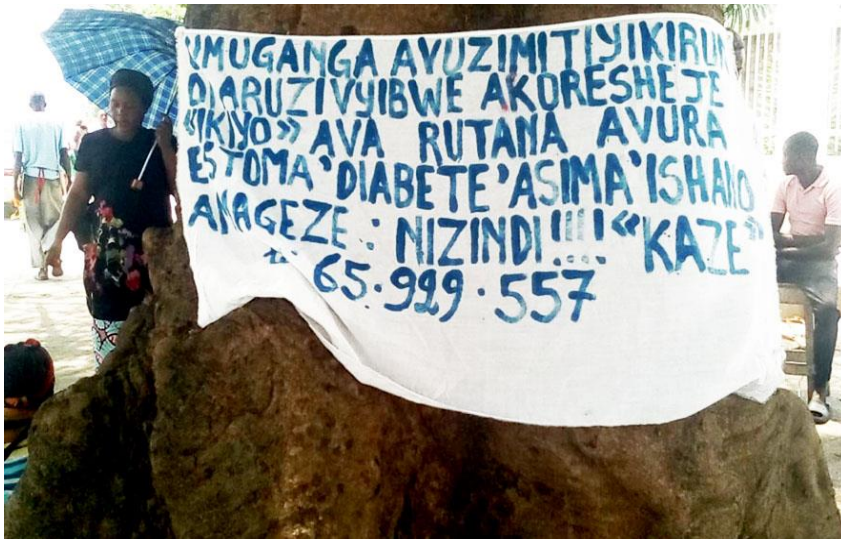 UMUGANGA AVUZIMITIYIKIRUN
DIARUZIVYIBWE AKORESHEJE
"IKIYO" AVA RUTANA AVURA
ESTOMA'DIABETE'ASIMA'ISHANO
ANAGEZE : NIZINDI!!!! "KAZE"
65.929.557